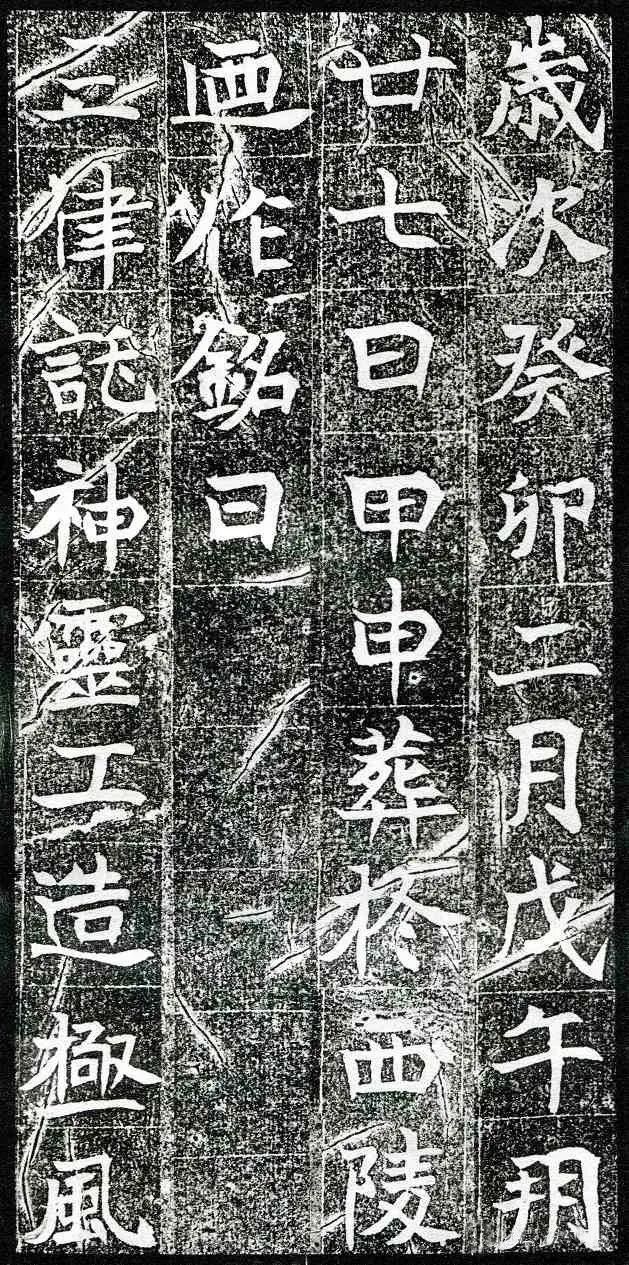 歲次癸卯二月戊午朔
廿七日甲申葬扵西陵
迺作銘曰
立律託神靈工造極風